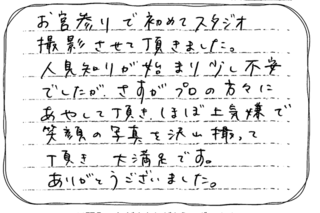 お宮参りで初めてスタジオ
撮影させて頂きました。
人見知りが始まり少し不安
でしたが、さすがプロの方々に
あやして頂き、ほぼ上気嫌で
笑顔の写真を沢山撮って
頂き 大満足です。
ありがとうございました。